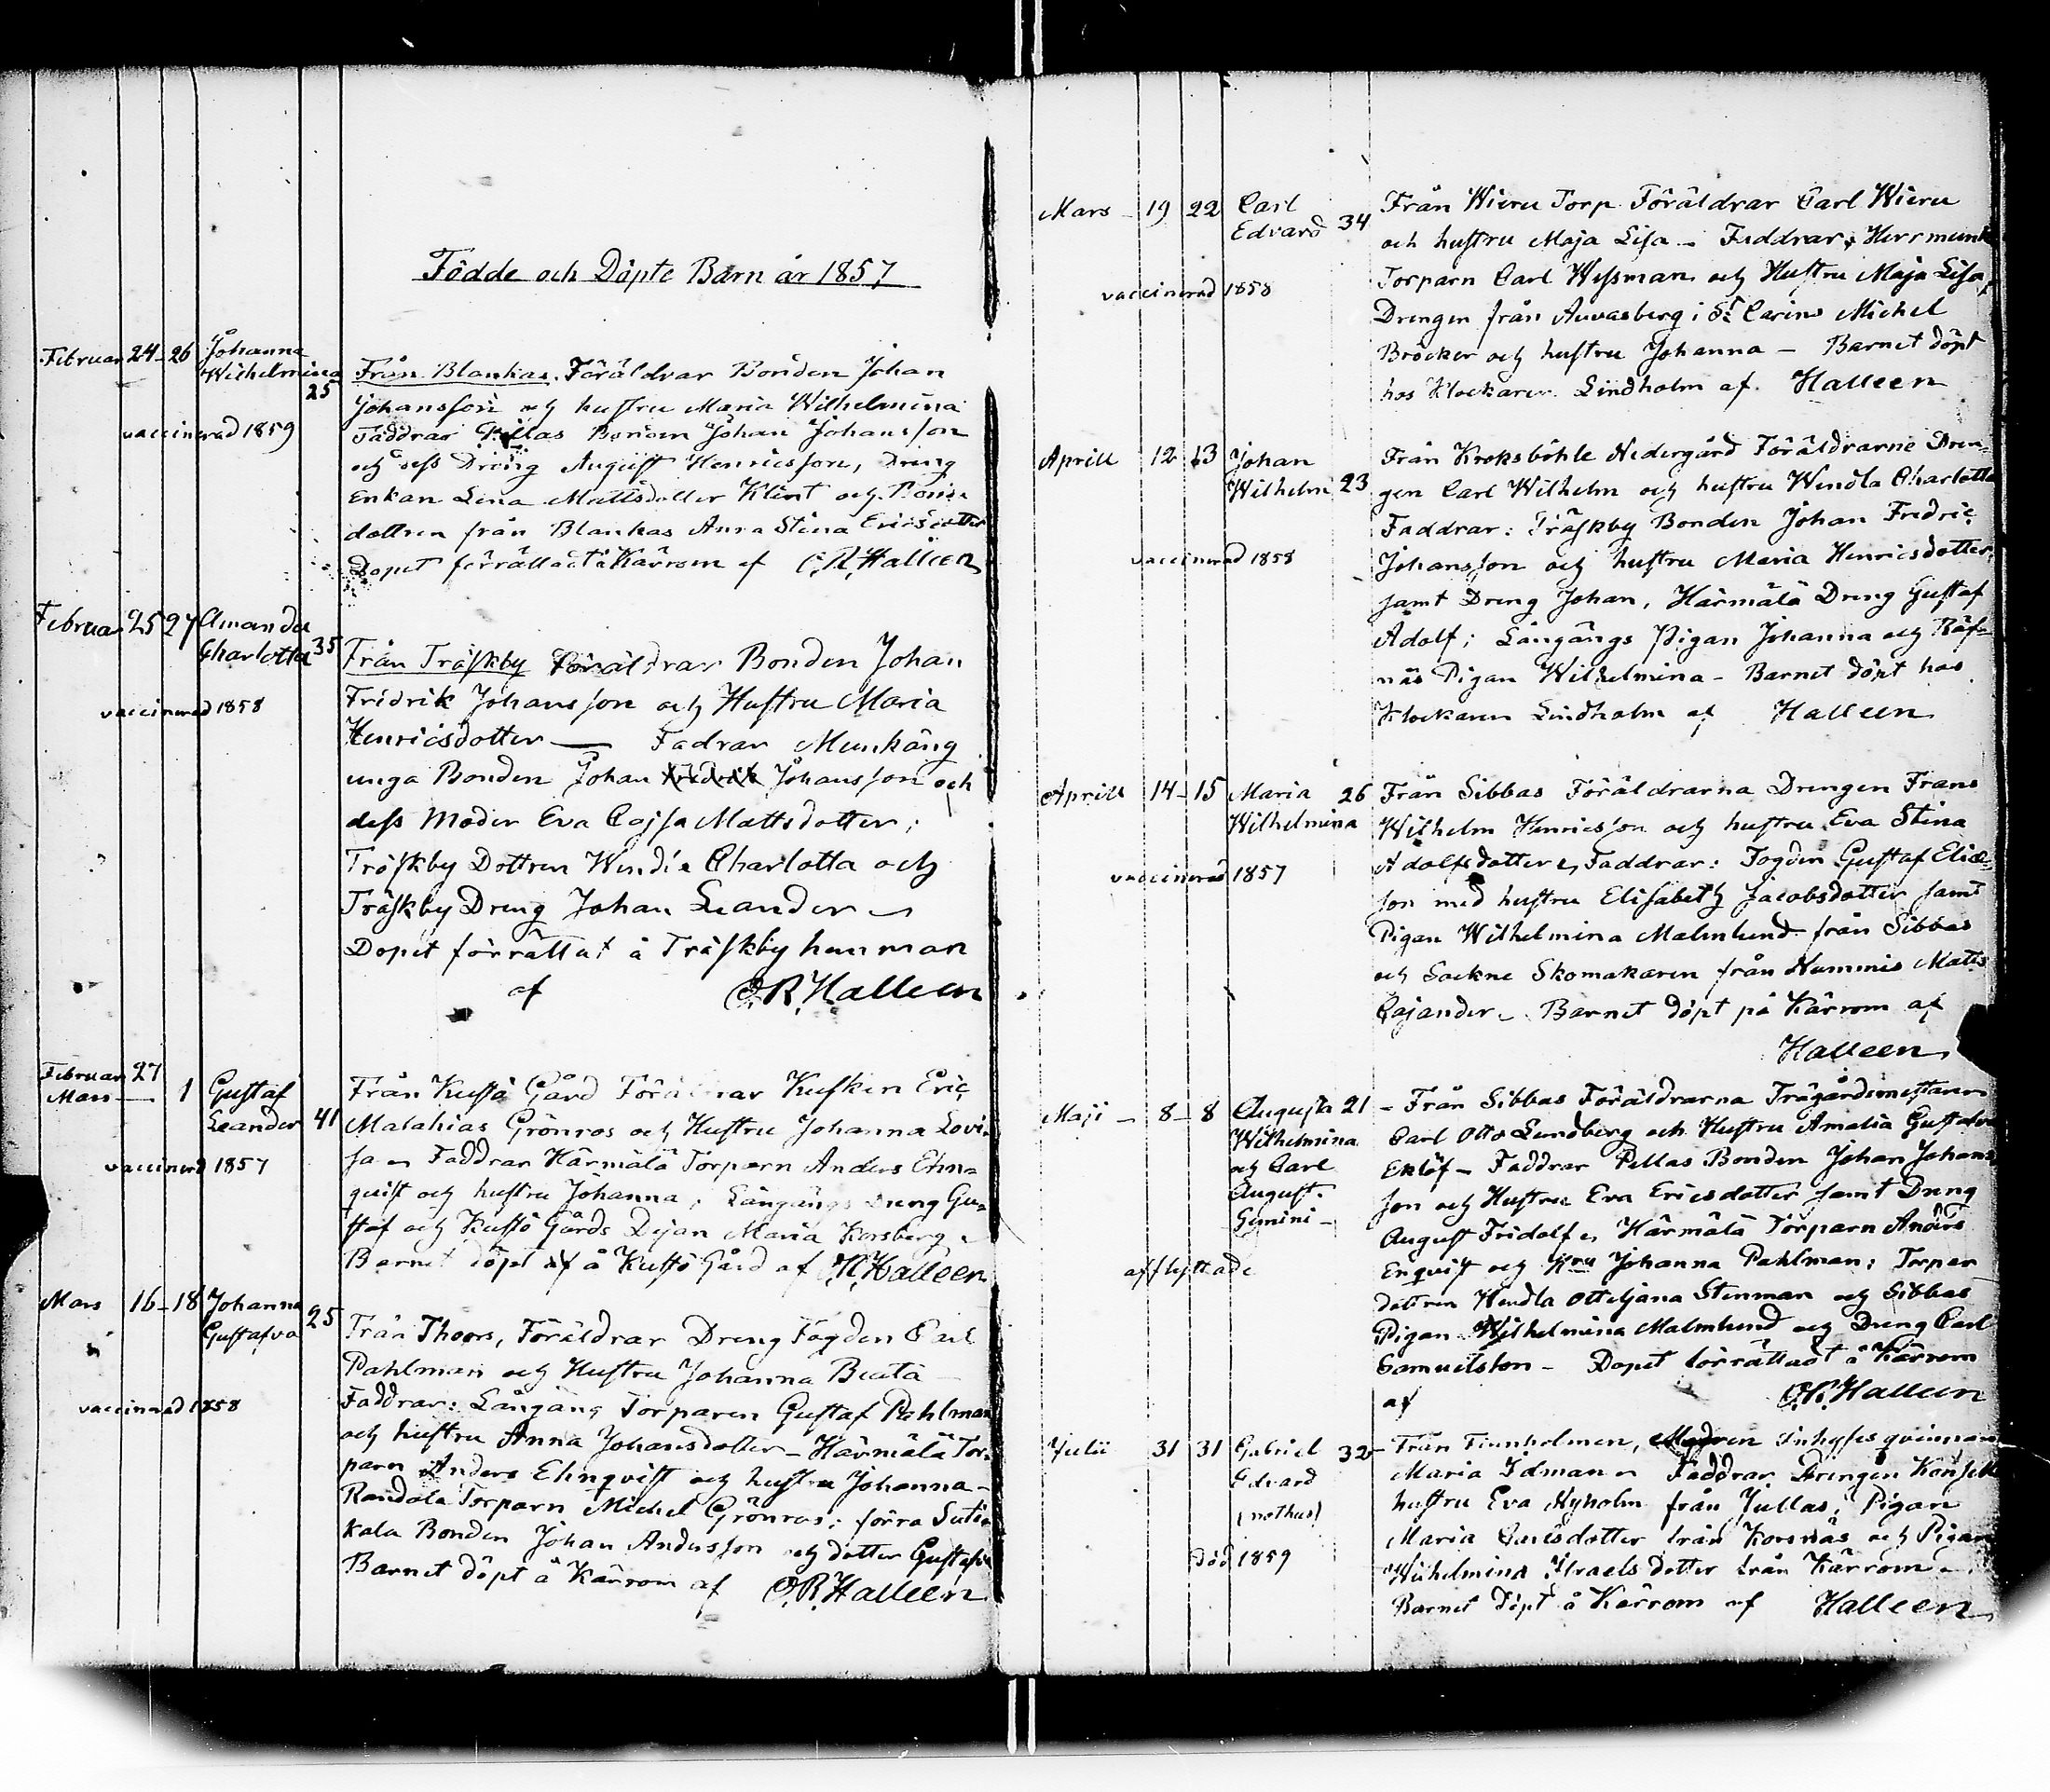 Födde och Döpte Barn år 1857
Februari 24 - 26 Johanna
Wilhelmina
25
vaccinerad 1859
Från Blankas. Föräldrar Bonden Johan
Johansson och hustru Maria Wilhelmina
Faddrar Pellas Bonden Johan Johansson
och dess Dreng August Henricsson, Dreng
Enkan Lena Mattsdotter Klint och Bonde
dottren från Blankas Anna Stina Ericsdotter
Dopet förrättadt å Kärrom af C.R. Halleen
Februari 25 27 Amanda
Charlotta 35
vaccinerad 1858
Från Träskby Föräldrar Bonden Johan
Fridrik Johansson och Hustru Maria
Henricsdotter — Fadrar Munkäng
unga Bonden Johan Fredrik Johansson och
dess Moder Eva Cajsa Mattsdotter;
Träskby Dottren Wendla Charlotta och
Träskby Dreng Johan Leander
Dopet förrättat å Träskby hemman
af O.R. Halleen
Februari 27
Mars — 1 Gustaf
Leander 41
vaccinerad 1857
Från Kustö Gård Föräldrar Kusken Eric
Malahias Grönros och Hustru Johanna Lovi-
sa Faddrar Härmälä Torparn Anders Ehn-
quist och hustru Johanna; Långängs Dreng Gu-
staf och Kustö Gårds Dejan Maria Korsberg
Barnet döpt af å Kustö Gård af O.R. Halleen
Mars 16 - 18 Johanna
Gustafva 25
vaccinerad 1858
Från Thoors, Föräldrar Dreng Fogden Carl
Pahlman och Hustru Johanna Beata
Faddrar: Långäng Torparen Gustaf Pahlman
och hustru Anna Johansdotter - Härmälä Tor-
parn Anders Ehnqvist och hustru Johanna -
Randala Torparn Michel Grönros; förra
kala Bonden Johan Andersson och dotter Gustafva
Barnet döpt å Kärrom af O.R. Halleen
Mars - 19 22 Carl
Edvard 34
vaccinerad 1858
Från Wieru Torp Föräldrar Carl Wieru
och hustru Maja Lisa - Faddrar,
Torparn Carl Wessman och Hustru Maja Lisa,
Drengen från Auvasberg i St Carins Michel
Bröcker och hustru Johanna - Barnet döpt
hos Klockaren Lindholm af. Halleen
Aprill 12 13 Johan
Wilhelm 23
vaccinerad 1858
Från Kroksböhle Nedergård Föräldrarne Dren-
gen Carl Wilhelm och hustru Wendla Charlotta
Faddrar: Träskby Bonden Johan Fredric
Johansson och hustru Maria Henricsdotter,
samt Dreng Johan, Härmälä Dreng Gustaf
Adolf; Långängs Pigan Johanna och Räf-
näs Pigan Wilhelmina - Barnet döpt hos
Klockaren Lindholm af Halleen
Aprill 14 - 15 Maria 26
Wilhelmina
vaccinerad 1857
Från Sibbas Föräldrarna Drengen Frans
Wilhelm Henricsson och hustru Eva Stina
Adolfsdotter, Faddrar: Fogden Gustaf Elias-
son med hustru Elisabeth Jacobsdotter samt
Pigan Wilhelmina Malmlund från Sibbas
och Sockne Skomakaren från Nummis Matts
Cajander. Barnet döpt på Kärrom af
Halleen
Maji - 8 - 8 Augusta 21
Wilhelmina
och Carl
August.
Gemini -
afflyttade
- Från Sibbas Föräldrarna Trägårdsmestaren
Carl Otto Lundberg och Hustru Amalia Gustafva
Eklöf - Faddrar Pellas Bonden Johan Johans-
son och Hustru Eva Ericsdotter samt Dreng
August Fridolf, Härmälä Torparn Anders
Enqvist och Hru Johanna Pahlman; Torpar
dottren Wendla Ottiljana Stenman och Sibbas
Pigan Wilhelmina Malmlund och Dreng Carl
Samuelsson - Dopet förrättadt å Kärrom
af O.R. Halleen
Julii 31 31 Gabriel 32
Edvard
(nothus)
död 1859
- Från Finnholmen, Modren Inhyses qvinnan
Maria Idman Faddrar Drengen
hustru Eva Nyholm från Jullas; Pigan
Maria Carlsdotter från Korsnäs och Pigan
Wilhelmina Israels dotter från Kärrom
Barnet döpt å Kärrom af Halleen